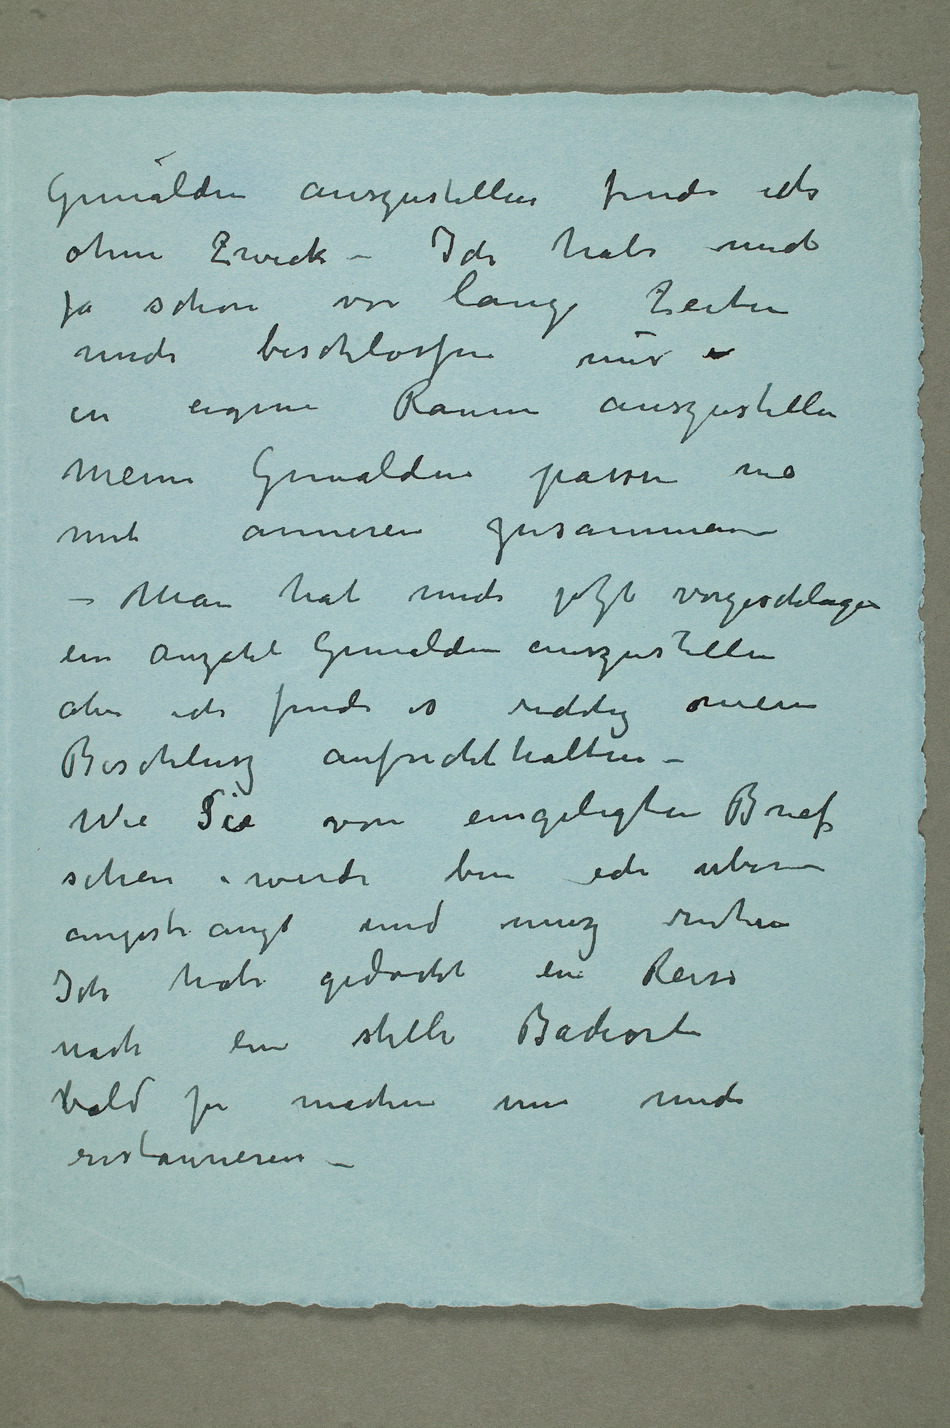 Gemälden auszustellen finde ich
ohne Zweck – Ich habe mich
ja schon vor lange Zeiten
mich beschlossen nur
in eigene Raume auszustellen
Meine Gemalden passen nie
mit anneren zusammen
– Man hat mich jetzt vorgeschlagen
ein Anzahl Gemalden auszustellen
aber ich finde es richtig meine
Beschlusz aufrechthalten –
Wie Sie von eingelegten Brief
sehen werde bin ich uber
angestrangt und musz ruhen
Ich habe gedacht ein Reise
nach ein stille Badeort
bald zu machen um mich
restaurieren –